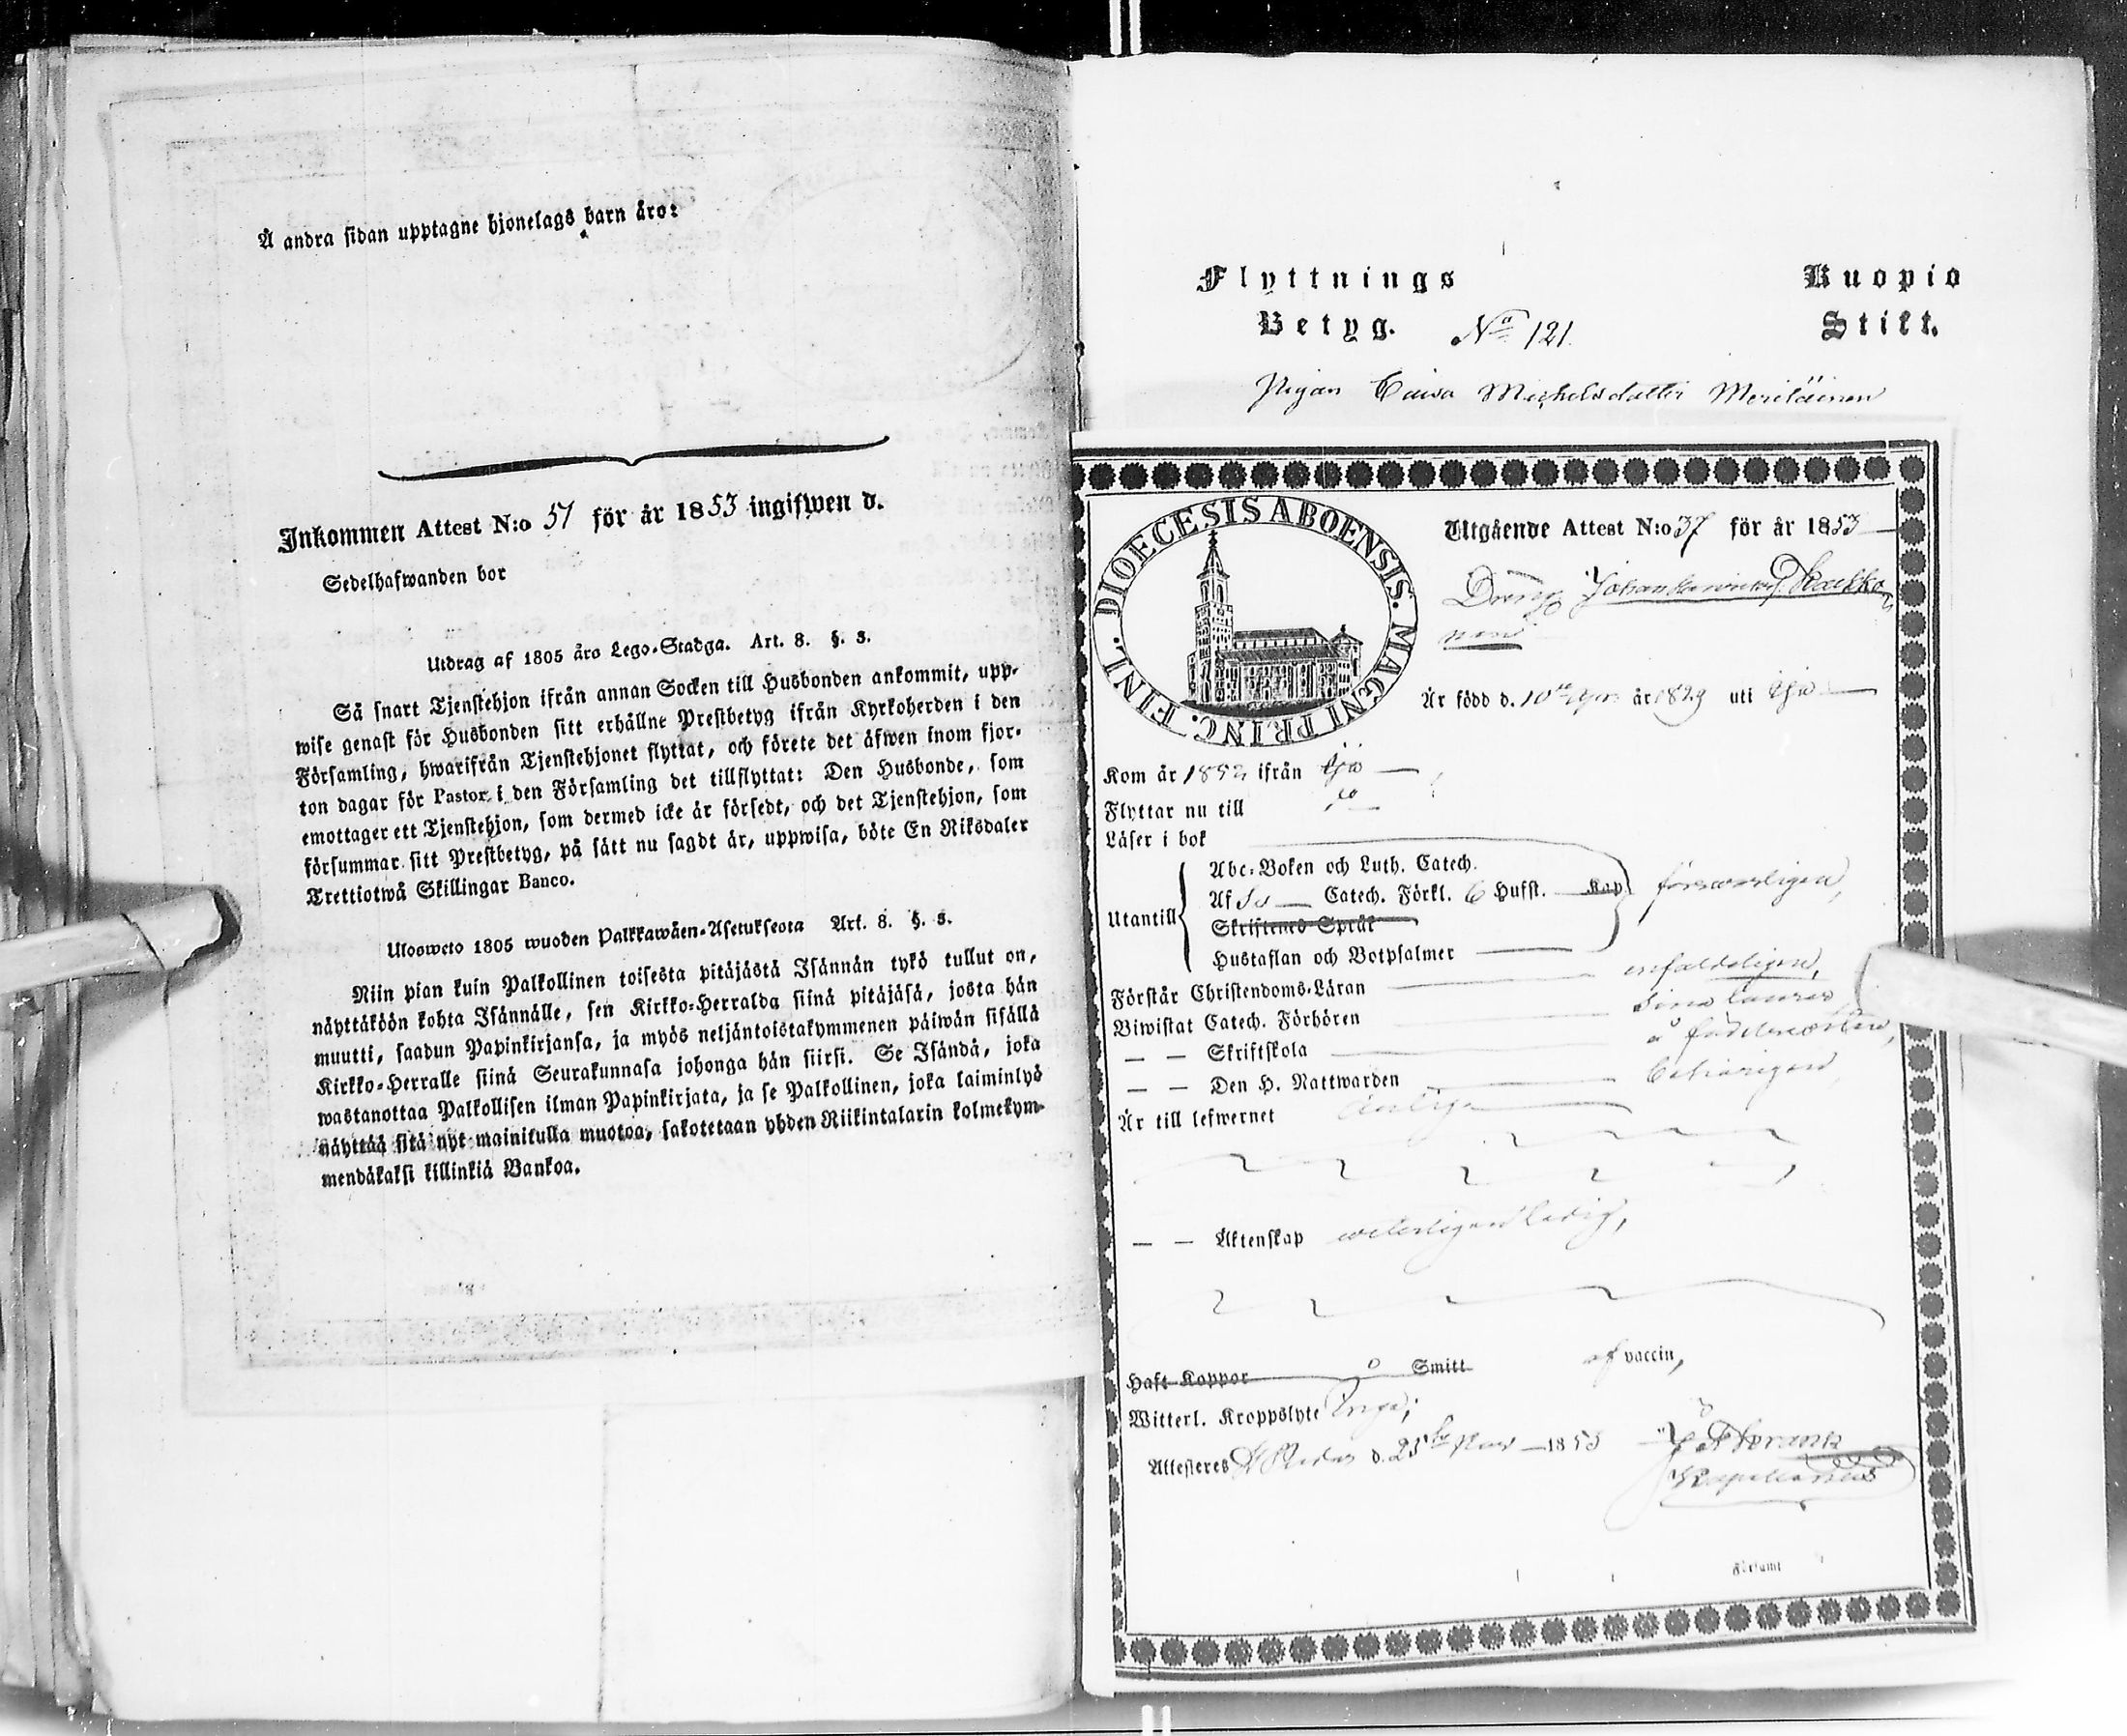 Å andra sidan upptagne hjonelags barn äro:
Inkommen Attest N:o 51 för år 1853 ingifwen d.
Sedelhafwanden bor
Utdrag af 1805 års Lego-Stadga. Art. 8. §. 3.
Så snart Tjenstehjon ifrån annan Socken till Husbonden ankommit, upp-
wise genast för Husbonden sitt erhållne Prestbetyg ifrån Kyrkoherden i den
Församling, hwarifrån Tjenstehjonet flyttat, och förete det äfwen inom fjor-
ton dagar för Pastor i den Församling det tillflyttat: Den Husbonde, som
emottager ett Tjenstehjon, som dermed icke är försedt, och det Tjenstehjon, som
försummar sitt Prestbetyg, på sätt nu sagdt är, uppwisa, böte En Riksdaler
Trettiotwå Skillingar Banco.
Ulosweto 1805 wuoden Palkkawäen-Asetuksesta Art. 8. §. 3.
Niin pian kuin Palkollinen toisesta pitäjästä Isännän tykö tullut on,
näyttäköön kohta Isännälle, sen Kirkko-Herralda siinä pitäjäsä, josta hän
muutti, saadun Papinkirjansa, ja myös neljäntoistakymmenen päiwän sisällä
Kirkko-Herralle siinä Seurakunnasa johonga hän siirsi. Se Isändä, joka
wastanottaa Palkollisen ilman Papinkirjata, ja se Palkollinen, joka laiminlyö
näyttää sitä nyt mainitulla muotoa, sakotetaan yhden Riikintalarin kolmekym-
mendäkaksi killinkiä Bankoa.
Flyttnings Kuopio
Betyg. No 121. Stift.
Pigan Caisa Michelsdotter Meriläinen
DIOECESIS ABOENSIS. MAGNI PRINC. FINL.
Utgående Attest N:o 37 för år 1853
Dreng Johan
nen
Är född d. 10 år 1829 uti
Kom år 1852 ifrån
Flyttar nu till
Läser i bok
Abc-Boken och Luth. Catech.
Utantill Af Sv Catech. Förkl. 6 Hufst. Kap. försvarligen,
Skriftenes Språk
Hustaflan och Botpsalmer
Förstår Christendoms-Läran enfaldeligen,
Biwistat Catech. Förhören
— — Skriftskola å födelseorten,
— — Den H. Nattwarden behörigen,
Är till lefwernet ärlig
— — Äktenskap veterligen ledig,
Haft Koppor Smitt af vaccin,
Witterl. Kroppslyte Inga;
Attesteres d. 25 1853
Kapellanus
Församl